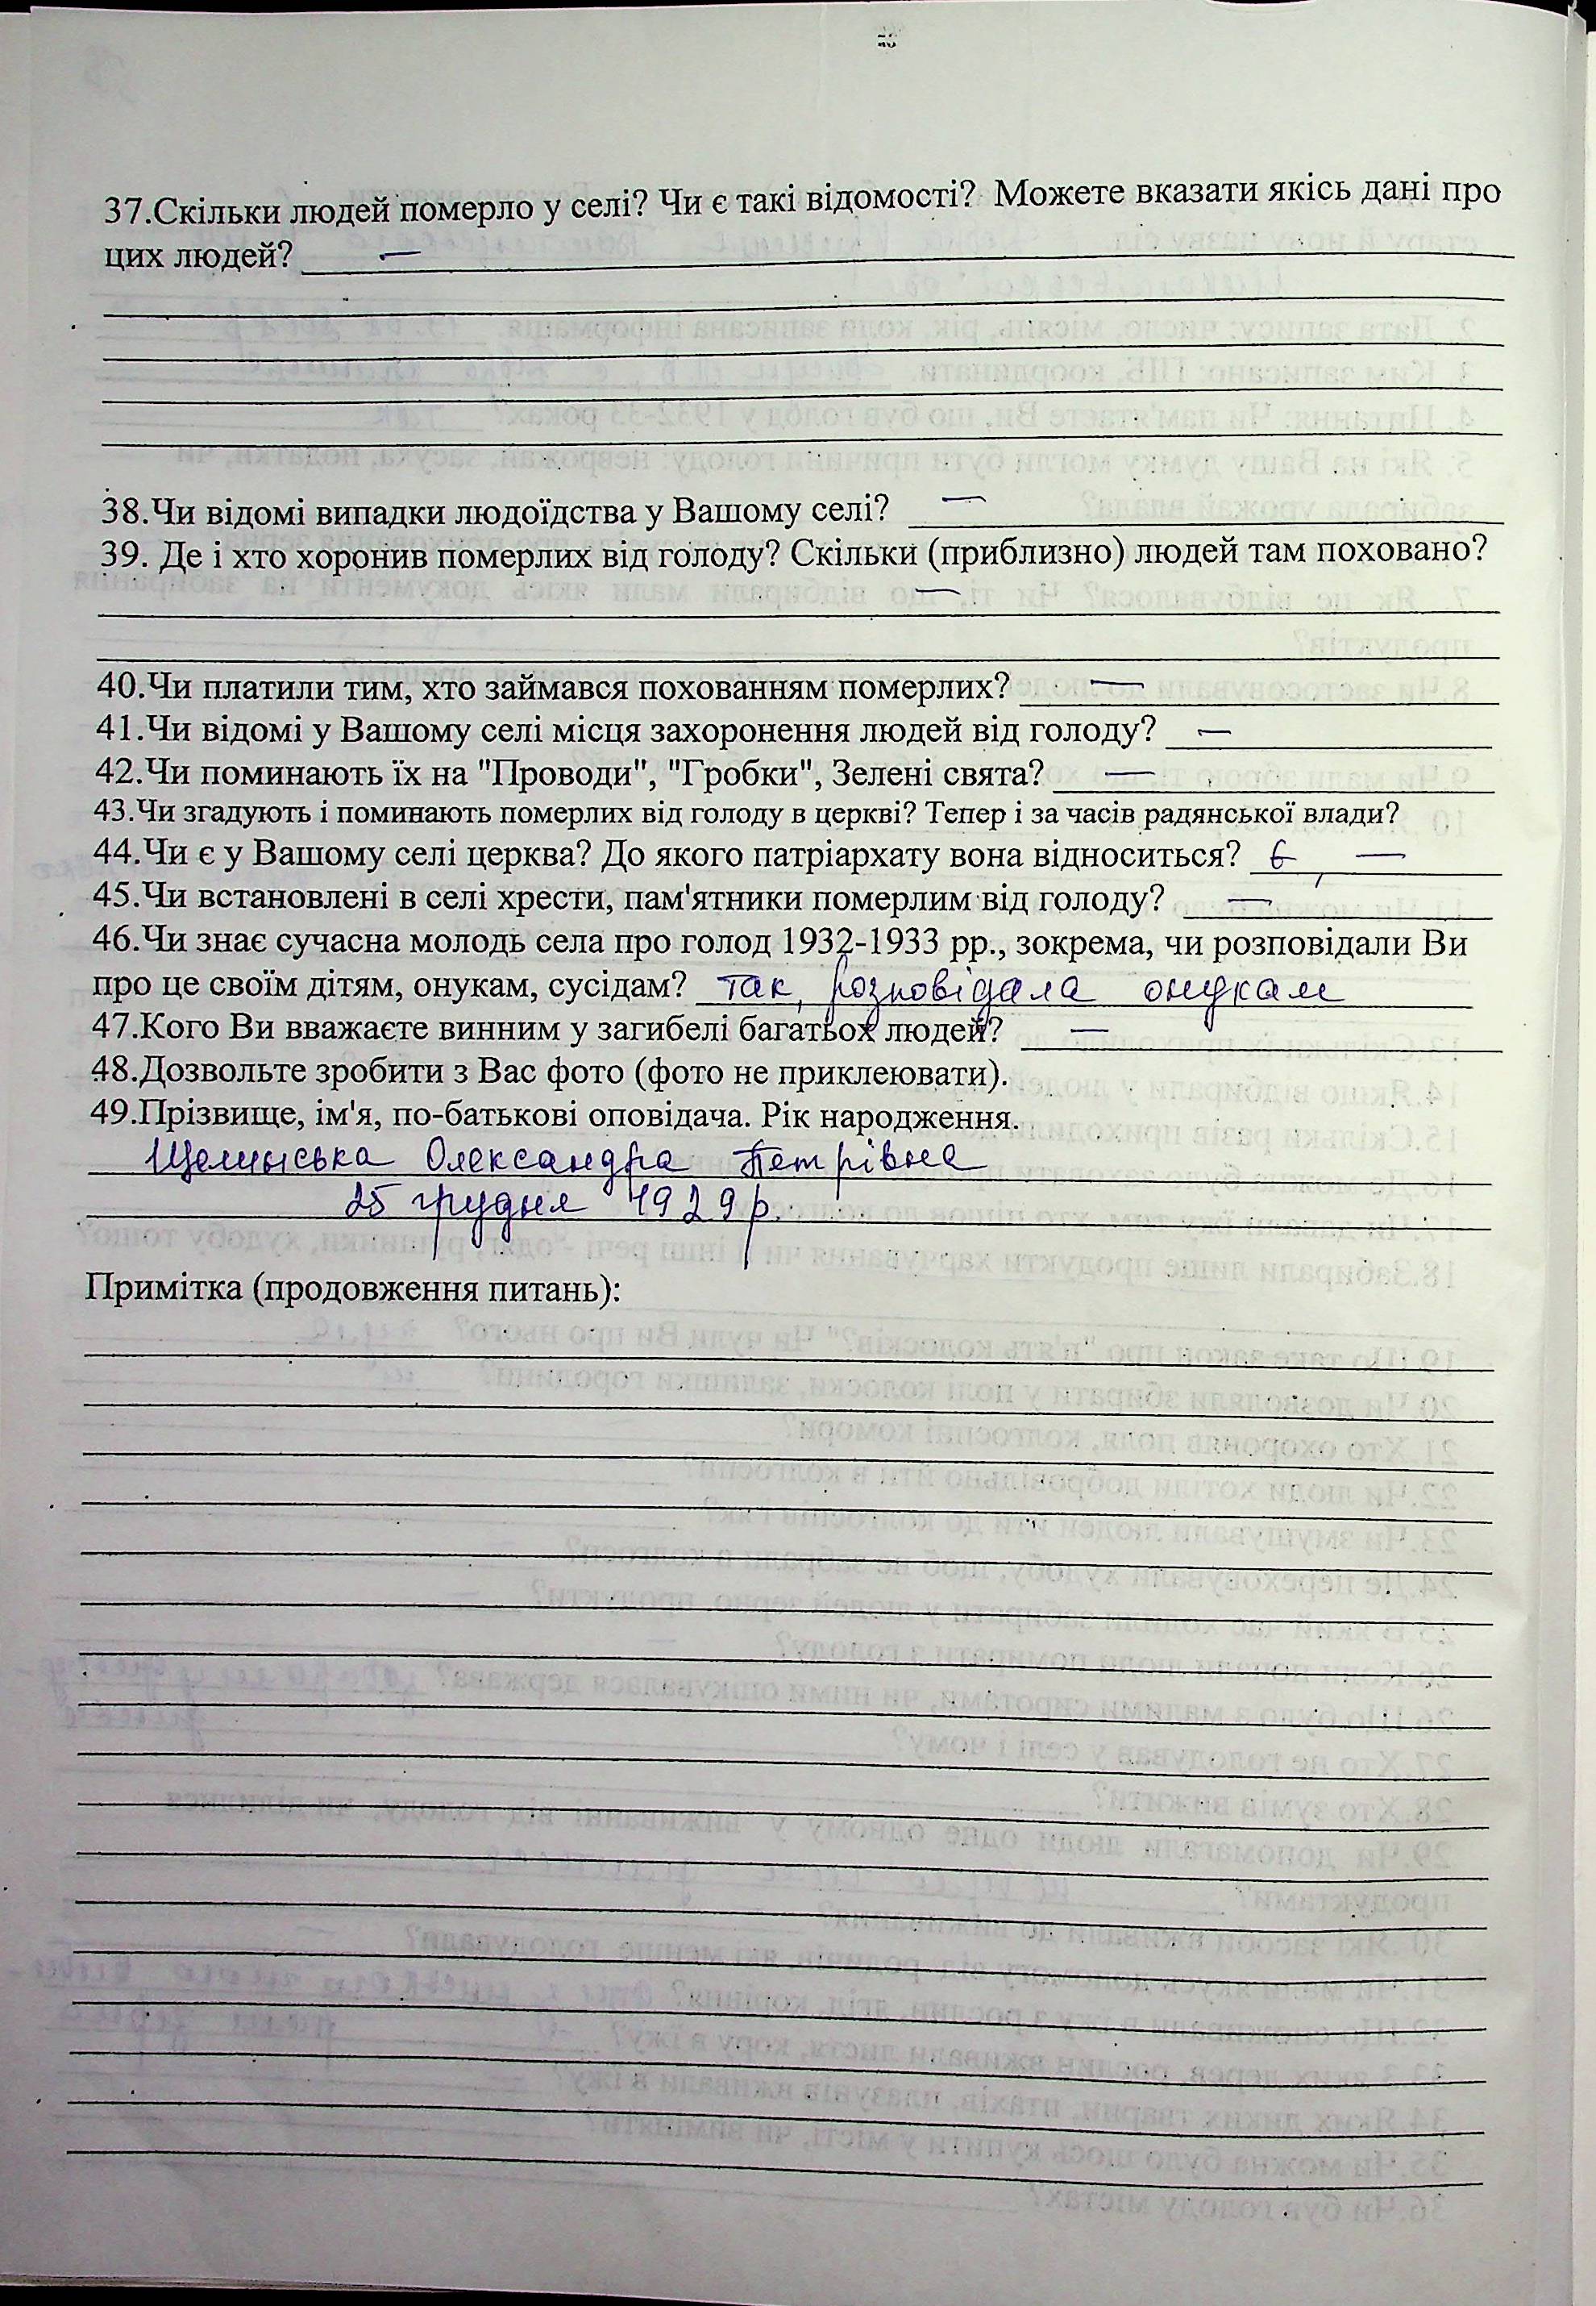 37.Скільки людей померло у селі? Чи є такі відомості? Можете вказати якісь дані про
цих людей? —
38.Чи відомі випадки людоїдства у Вашому селі? —
39. Де і хто хоронив померлих від голоду? Скільки (приблизно) людей там поховано?
—
40.Чи платили тим, хто займався похованням померлих? —
41.Чи відомі у Вашому селі місця захоронення людей від голоду? —
42.Чи поминають їх на "Проводи", "Гробки", Зелені свята? —
43.Чи згадують і поминають померлих від голоду в церкві? Тепер і за часів радянської влади?
44.Чи є у Вашому селі церква? До якого патріархату вона відноситься? Є, —
45.Чи встановлені в селі хрести, пам'ятники померлим від голоду? —
46.Чи знає сучасна молодь села про голод 1932-1933 рр., зокрема, чи розповідали Ви
про це своїм дітям, онукам, сусідам? так, розповідала онукам
47.Кого Ви вважаєте винним у загибелі багатьох людей? —
48.Дозвольте зробити з Вас фото (фото не приклеювати).
49.Прізвище, ім'я, по-батькові оповідача. Рік народження.
Олександра Петрівна
25 грудня 1929р.
Примітка (продовження питань):